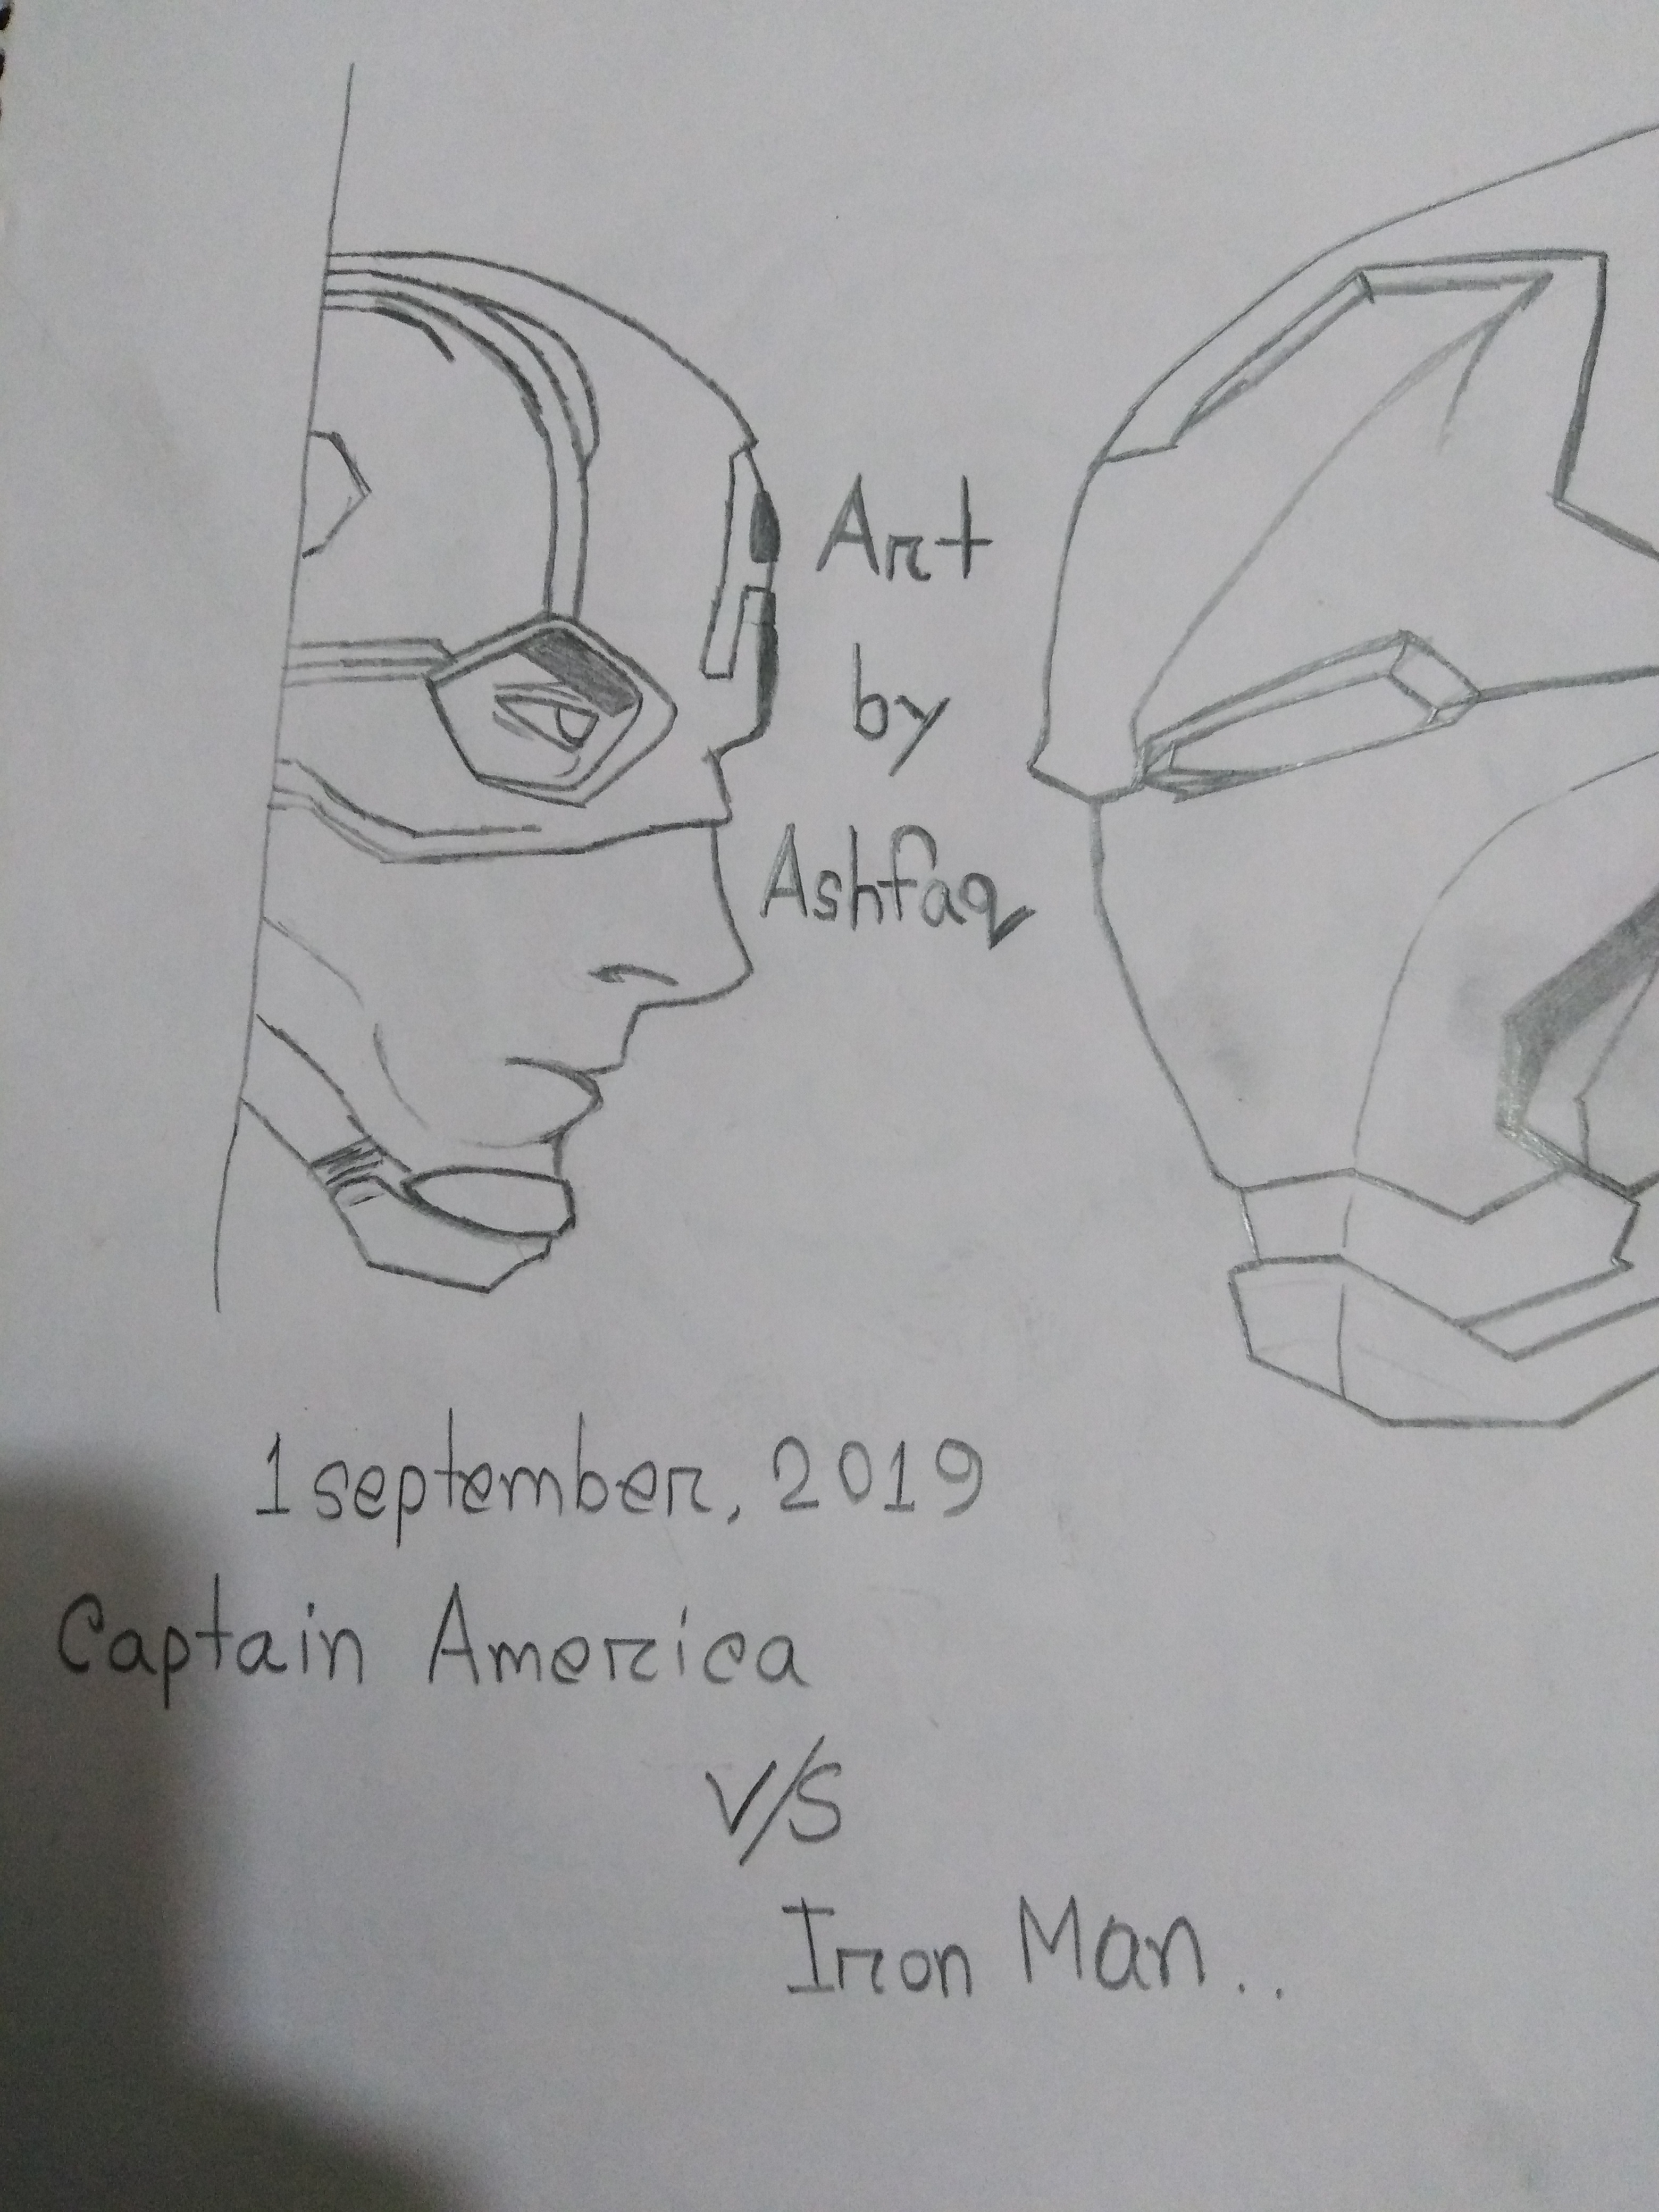 Art
by
Ashfaq
1 september, 2019
Captain America
V/S
Iron Man..